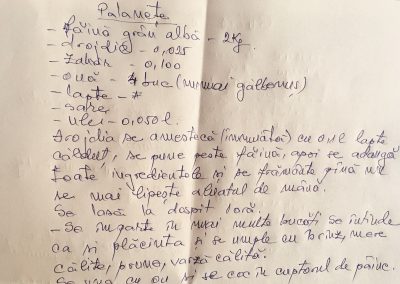 Palanețe
- făină grâu albă - 2Kg.
- drojdie - 0,025
- zahăr - 0,100
- ouă - 4 buc (numai gălbenuș)
- lapte -
- sare,
- ulei - 0,050 l.
Drojdia se amestecă (înmuiată) cu 0,1 l lapte
călduț, se pune peste făină, apoi se adaugă
toate ingredientele și se frământă pînă nu
se mai lipește aluatul de mână.
Se lasă la dospit 1 oră.
- Se împarte în mai multe bucăți se întinde
ca și plăcinta și se umple cu brînză, mere
călite, prune, varză călită.
Se unge cu ou și se coc în cuptorul de pâine.